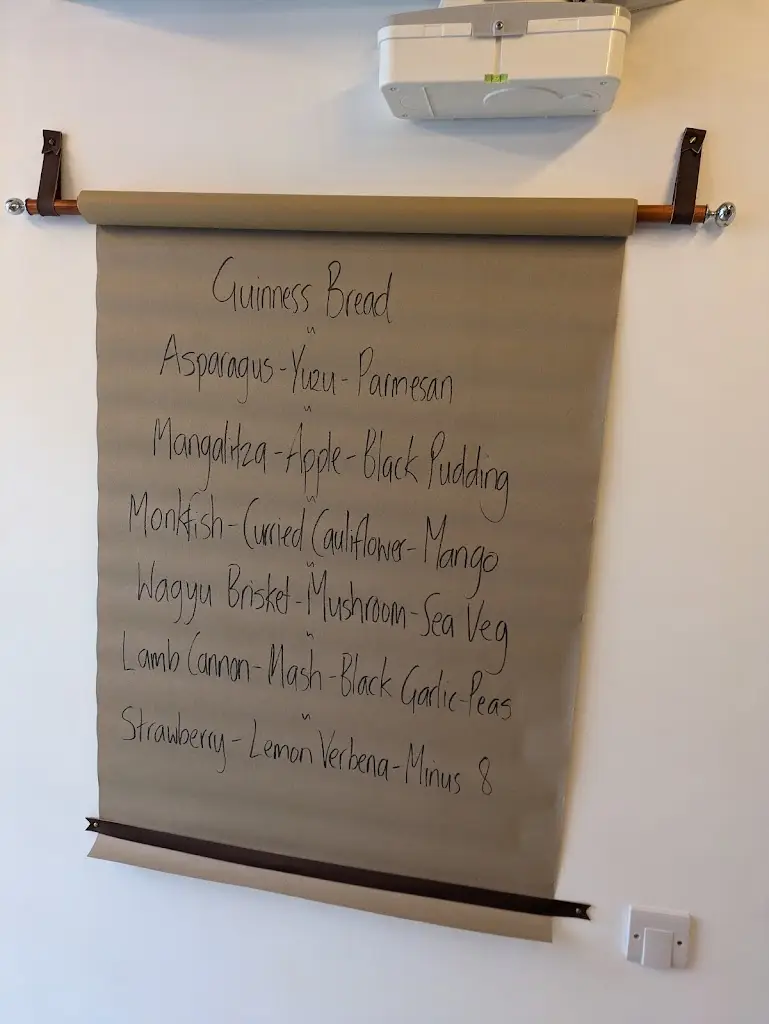 Guinness Bread
Asparagus-Yuzu-Parmesan
Mangalitza-Apple-Black Pudding
Monkfish-Curried Cauliflower-Mango
Wagyu Brisket-Mushroom-Sea Veg
Lamb Cannon-Mash-Black Garlic-Peas
Strawberry-Lemon Verbena-Minus 8